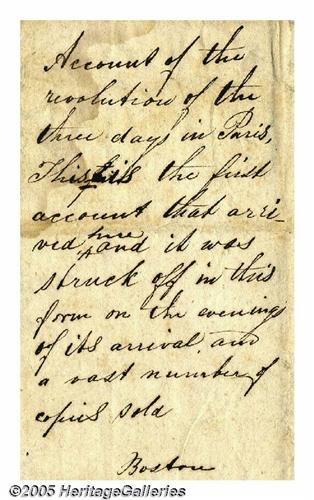 Account of the
revolution of the
three days in Paris,
This is the first
account that arri-
ved here and it was
struck off in this
form on the evenings
of its arrival and
a vast number of
copies sold
Boston
©2005 HeritageGalleries